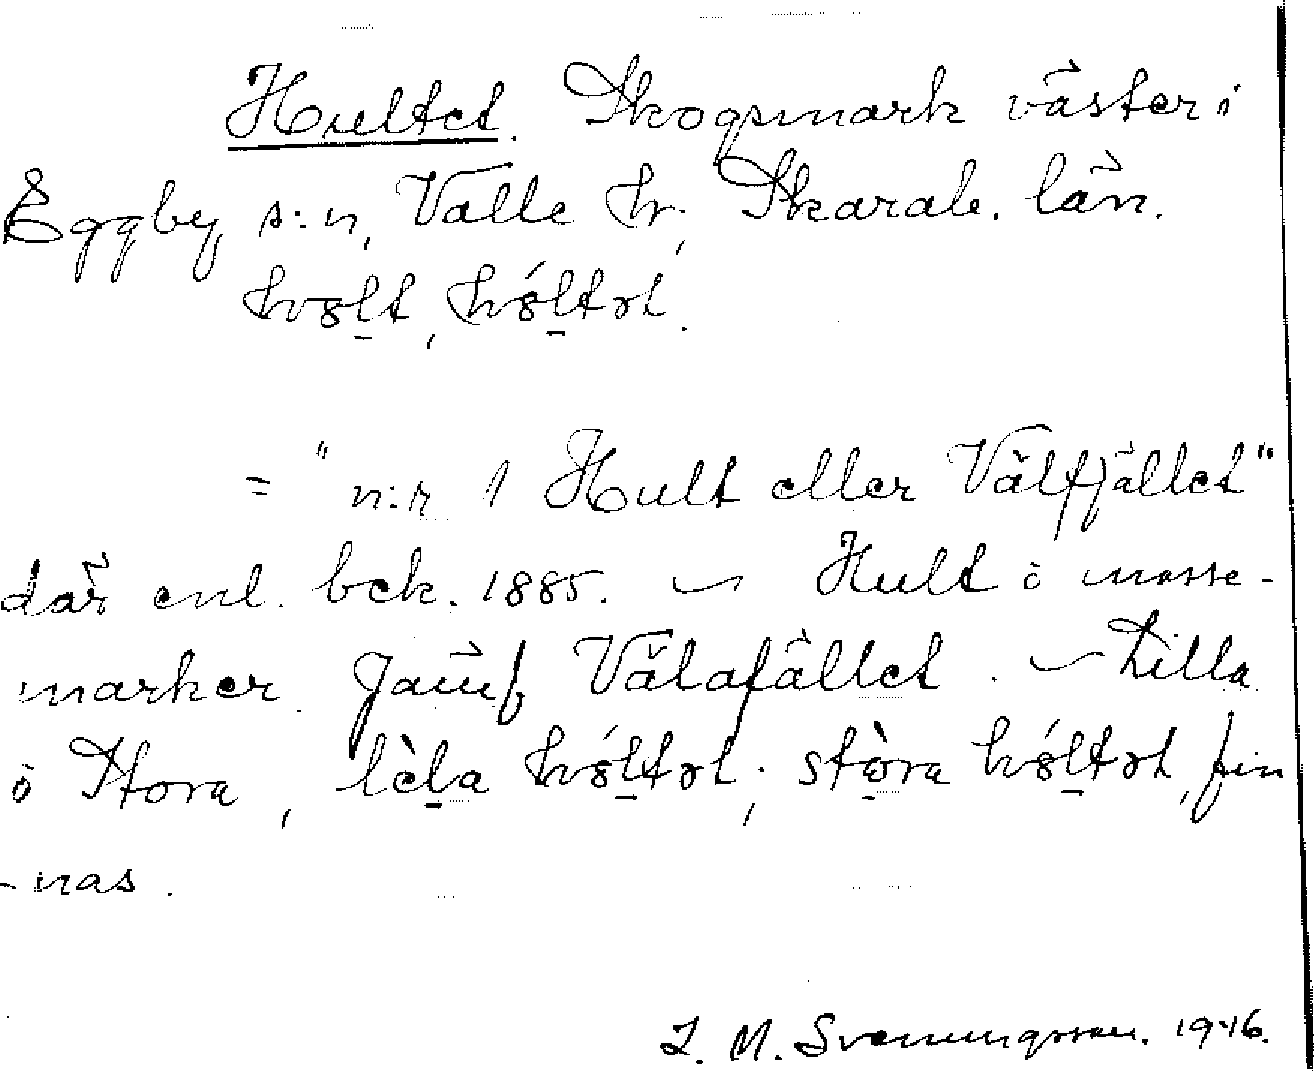 Hultet. Skogsmark väster i
Eggby s:n, Valle hr, Skarab. län.
hvólt, hvóltət.
= "n:r 1 Hult eller Välfjället"
där enl. bck. 1885. ~ Hult i mosse-
marker. Jämf Välafället. ~ Lilla
o Stora, lɩ̀la hvóltət, stòra hvóltət, fin
-nas.
L. M. Svenungsson. 1946.